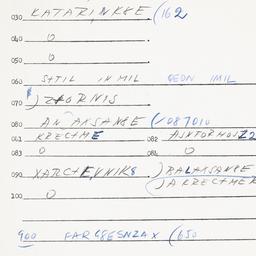 030 KATARINK8E (162
040 0
050 0
060 STIL IN MIL GEON IMIL
070 ) ZFORNIS
080 AN?AKSAN8E (087010
081 KRECTME 082
083 0 084 0
090 XARCTEVNIK8 ) BALAKSAN8E
) A KRECTMER
100 0
900 FARC8ESNZAX (650